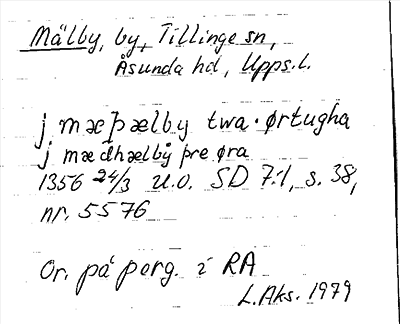 Mälby, by, Tillinge sn,
Åsunda hd, Upps.l.
j mæþælby twa·ørtugha
j mædhælby þre øra
1356 24/3 u.o. SD 7:1, s. 38,
nr. 5576
Or. på perg. i RA
L.Aks. 1979